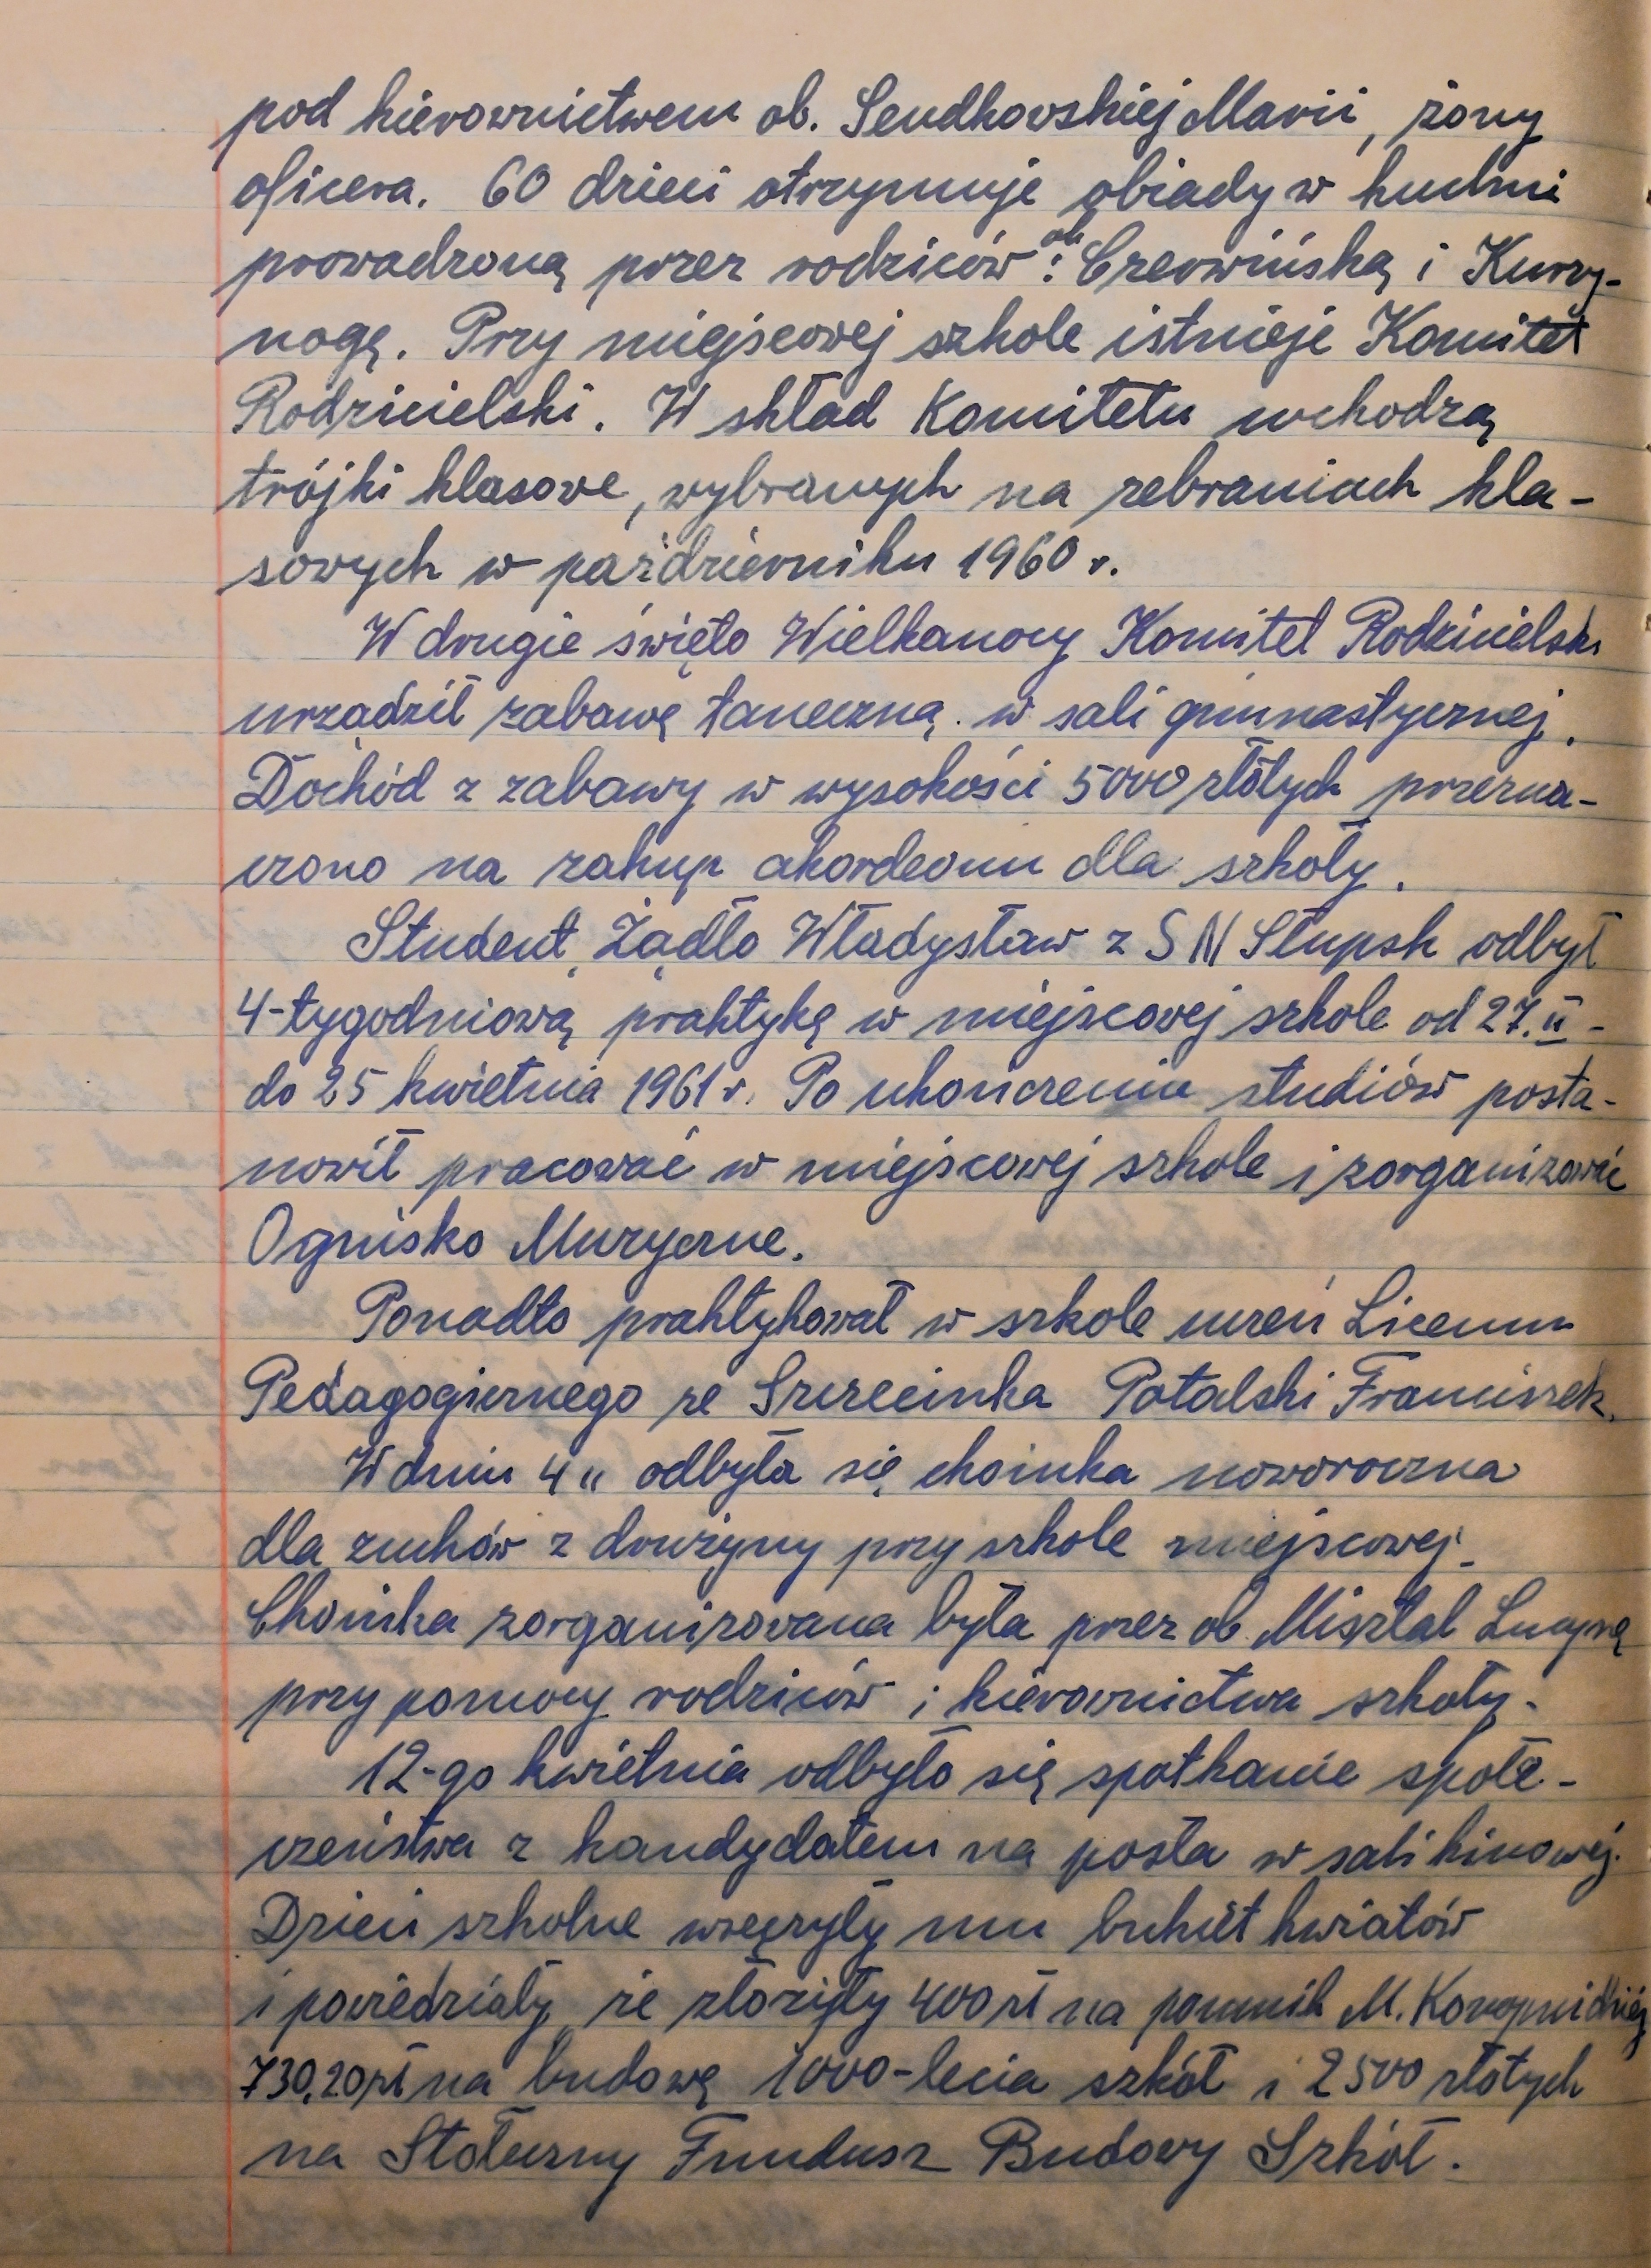 pod kierownictwem ob. Sendkowskiej Marii, żony
oficera. 60 dzieci otrzymuje obiady w kuchni
prowadzoną przez rodziców ob.: Czerwińską i Kurzy-
nogę. Przy miejscowej szkole istnieje Komitet
Rodzicielski. W skład Komitetu wchodzą
trójki klasowe, wybranych na zebraniach kla-
sowych w październiku 1960 r.
W drugie święto Wielkanocy Komitet Rodzicielski
urządził zabawę taneczną w sali gimnastycznej.
Dochód z zabawy w wysokości 5000 złotych przezna-
czono na zakup akordeonu dla szkoły.
Student Żądło Władysław z SN Słupsk odbył
4-tygodniową praktykę w miejscowej szkole od 27.II -
do 25 kwietnia 1961 r. Po ukończeniu studiów posta-
nowił pracować w miejscowej szkole i zorganizować
Ognisko Muzyczne.
Ponadto praktykował w szkole uczeń Liceum
Pedagogicznego ze Szczecinka Potalski Franciszek.
W dniu 4 odbyła się choinka noworoczna
dla zuchów z drużyny przy szkole miejscowej.
Choinka zorganizowana była przez ob. Misztal Lucynę
przy pomocy rodziców i kierownictwa szkoły.
12-go kwietnia odbyło się spotkanie społe-
czeństwa z kandydatem na posła w sali kinowej.
Dzieci szkolne wręczyły mu bukiet kwiatów
i powiedziały, że złożyły 400 zł na pomnik M. Konopnickiej
730,20 zł na budowę 1000-lecia szkół i 2500 złotych
na Stołeczny Fundusz Budowy Szkół.